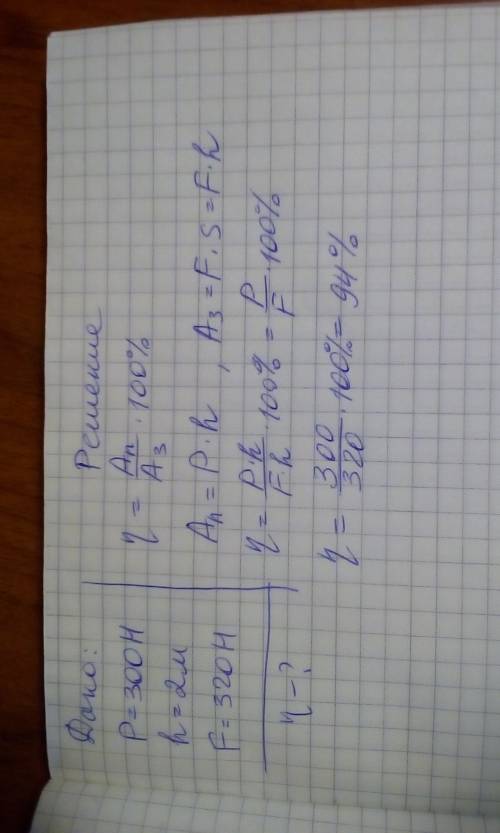 Дано:
P = 300Н
h = 2м
F = 320Н
η - ?
Решение
η = Aп/Aз · 100%
Aп = P·h , Aз = F·S = F·h
η = P·h/F·h · 100% = P/F · 100%
η = 300/320 · 100% = 94%